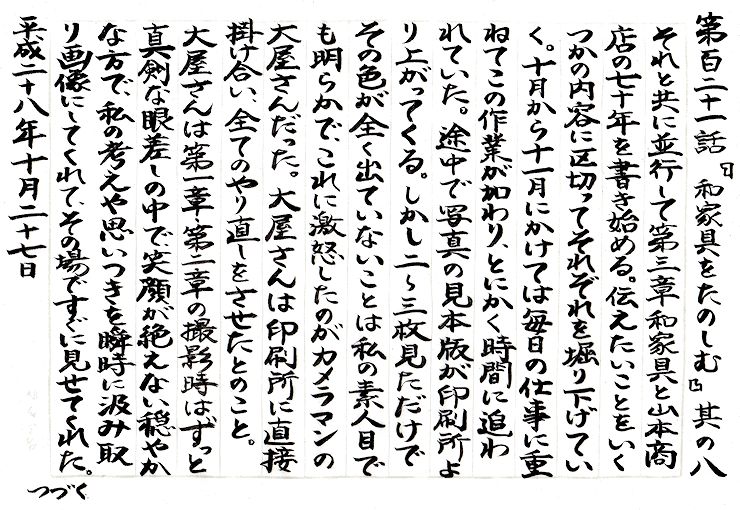 第百二十一話『和家具をたのしむ』其の八
それと共に並行して第三章和家具と山本商
店の七十年を書き始める。伝えたいことをいく
つかの内容に区切ってそれぞれを堀り下げてい
く。十月から十一月にかけては毎日の仕事に重
ねてこの作業が加わり、とにかく時間に追わ
れていた。途中で写真の見本版が印刷所よ
り上がってくる。しかし二〜三枚見ただけで
その色が全く出ていないことは私の素人目で
も明らかで、これに激怒したのがカメラマンの
大屋さんだった。大屋さんは印刷所に直接
掛け合い、全てのやり直しをさせたとのこと。
大屋さんは第一章・第二章の撮影時はずっと
真剣な眼差しの中で、笑顔が絶えない穏やか
な方で、私の考えや思いつきを瞬時に汲み取
り画像にしてくれて、その場ですぐに見せてくれた。
平成二十八年十月二十七日
つづく